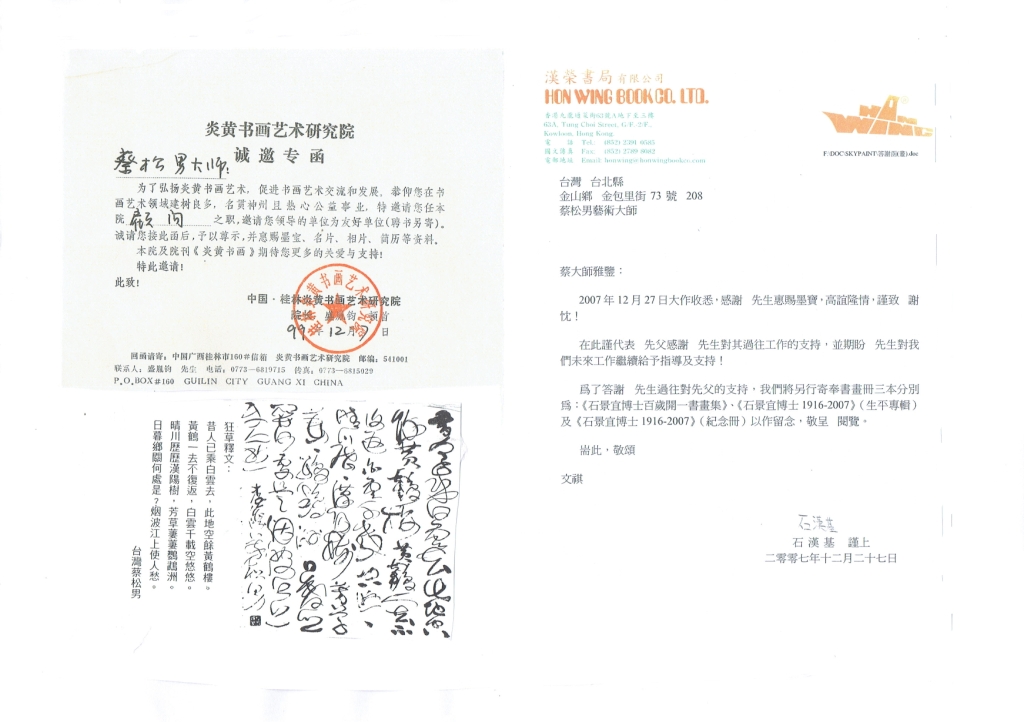 炎黄书画艺术研究院
诚邀专函
蔡松男大师:
为了弘扬炎黄书画艺术，促进书画艺术交流和发展。恭仰您在书
画艺术领域建树良多，名赏神州且热心公益事业，特邀请您任本
院 顾问 之职，邀请您领导的单位为友好单位(聘书另寄)。
诚请您接此函后，予以尊示，并惠赐墨宝、名片、相片、简历等资料。
本院及院刊《炎黄书画》期待您更多的关爱与支持!
特此邀请!
此致!
中国·桂林炎黄书画艺术研究院
院长 盛胤钧 顿首
99年12月7日
回函请寄: 中国广西桂林市160#信箱 炎黄书画艺术研究院 邮编: 541001
联系人: 盛胤钧 先生 电话: 0773—6819715 传真: 0773—6815929
P.O.BOX#160 GUILIN CITY GUANG XI CHINA
狂草釋文：
昔人已乘白雲去，此地空餘黃鶴樓。
黃鶴一去不復返，白雲千載空悠悠。
晴川歷歷漢陽樹，芳草萋萋鸚鵡洲。
日暮鄉關何處是？烟波江上使人愁。
台灣蔡松男
漢榮書局有限公司
HON WING BOOK CO. LTD.
Kowloon, Hong Kong
電話 Tel: (852) 2391 0585
圖文傳真 Fax: (852) 2789 8082
電郵地址 Email: honwing@honwingbookco.com
HON
WING
F:\DOC\SKYPAINT\答謝函(臺).doc
台灣 台北縣
金山鄉 金包里街 73 號 208
蔡松男藝術大師
蔡大師雅鑒：
2007 年 12 月 27 日大作收悉，感謝 先生惠賜墨寶，高誼隆情，謹致 謝
忱！
在此謹代表 先父感謝 先生對其過往工作的支持，並期盼 先生對我
們未來工作繼續給予指導及支持！
爲了答謝 先生過往對先父的支持，我們將另行寄奉書畫冊三本分別
爲：《石景宜博士百歲開一書畫集》、《石景宜博士 1916-2007》（生平專輯）
及《石景宜博士 1916-2007》（紀念冊）以作留念，敬呈 閱覽。
耑此，敬頌
文祺
石漢基
石漢基 謹上
二零零七年十二月二十七日